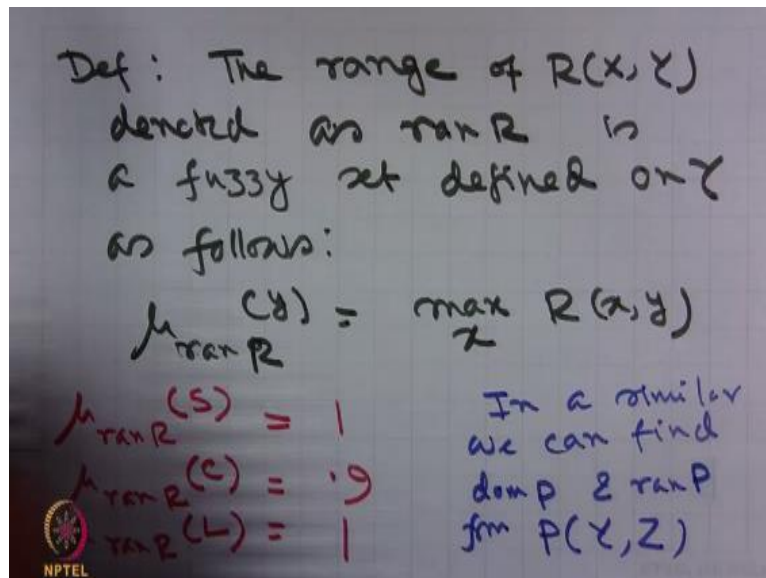 Def: The range of R(X, Y)
denoted as ran R is
a fuzzy set defined on Y
as follows:
μ_ran R (y) = max_x R(x, y)
μ_ran R (S) = 1
μ_ran R (C) = .9
ran R (L) = 1
In a similar
we can find
dom P & ran P
for P(Y, Z)
NPTEL